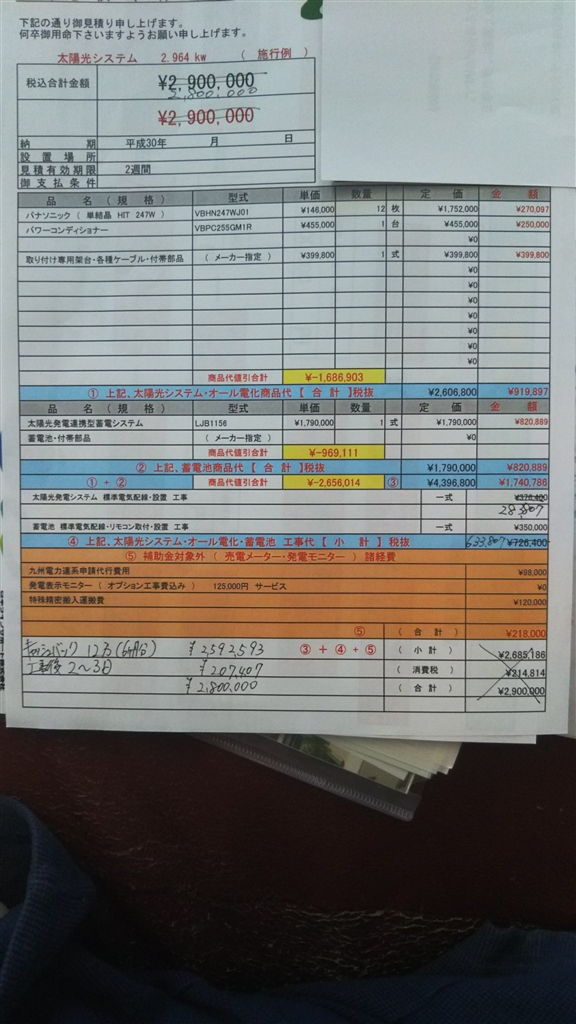 下記の通り御見積り申し上げます。
何卒御用命下さいますようお願い申し上げます。
太陽光システム 2.964 kw ( 施行例 )
税込合計金額 ¥2,900,000
2,800,000
¥2,900,000
納期 平成30年 月 日
設置場所
見積有効期限 2週間
御支払条件
品名(規格) 型式 単価 数量 定価 金額
パナソニック( 単結晶 HIT 247W ) VBHN247WJ01 ¥146,000 12 枚 ¥1,752,000 ¥270,097
パワーコンディショナー VBPC255GM1R ¥455,000 1 台 ¥455,000 ¥250,000
¥0
取り付け専用架台・各種ケーブル・付帯部品 ( メーカー指定 ) ¥399,800 1 式 ¥399,800 ¥399,800
¥0
¥0
¥0
¥0
¥0
¥0
¥0
商品代値引合計 ¥-1,686,903
① 上記、太陽光システム・オール電化商品代【 合 計 】税抜 ¥2,606,800 ¥919,897
品名(規格) 型式 単価 数量 定価 金額
太陽光発電連携型蓄電システム LJB1156 ¥1,790,000 1 式 ¥1,790,000 ¥820,889
蓄電池・付帯部品 ( メーカー指定 ) ¥0
商品代値引合計 ¥-969,111
② 上記、蓄電池商品代【 合 計 】税抜 ¥1,790,000 ¥820,889
① + ② 商品代値引合計 ¥-2,656,014 ③ ¥4,396,800 ¥1,740,786
太陽光発電システム 標準電気配線・設置 工事 一式 ¥376,400
283,807
蓄電池 標準電気配線・リモコン取付・設置 工事 一式 ¥350,000
④ 上記、太陽光システム・オール電化・蓄電池 工事代【 小 計 】税抜 633,807 ¥726,400
⑤ 補助金対象外( 売電メーター・発電モニター )諸経費
九州電力連系申請代行費用 ¥98,000
発電表示モニター( オプション工事費込み ) 125,000円 サービス ¥0
特殊精密搬入運搬費 ¥120,000
⑤ ( 合 計 ) ¥218,000
キャッシュバック 12万(6ヶ月分) ¥2,592,593 ③ + ④ + ⑤ ( 小 計 ) ¥2,685,186
工事後 2~3日 ¥207,407 ( 消費税 ) ¥214,814
¥2,800,000 ( 合 計 ) ¥2,900,000